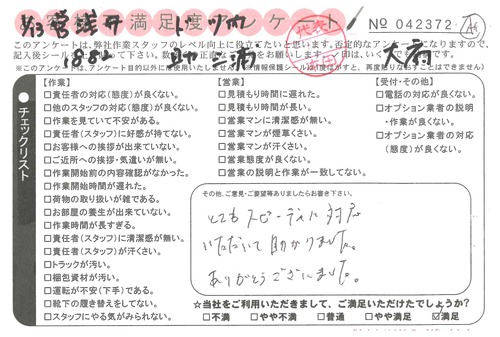 満足度アンケート
No 042372
このアンケートは、弊社作業スタッフのレベル向上に役立てたいと思います。
1884
【作業】
□責任者の対応(態度)が良くない。
□他のスタッフの対応(態度)が良くない。
□作業を見ていて不安がある。
□責任者(スタッフ)に好感が持てない。
□お客様への挨拶が出来ていない。
□ご近所への挨拶・気遣いが無い。
□作業開始前の内容確認がなかった。
□作業開始時間が遅れた。
□荷物の取り扱いが雑である。
□お部屋の養生が出来ていない。
□作業時間が長すぎる。
□責任者(スタッフ)に清潔感が無い。
□責任者(スタッフ)が汗くさい。
□トラックが汚い。
□梱包資材が汚い。
□運転が不安(下手)である。
□靴下の履き替えをしてない。
□スタッフにやる気がみられない。
【営業】
□見積もり時間に遅れた。
□見積もり時間が長い。
□営業マンに清潔感が無い。
□営業マンが煙草くさい。
□営業マンが汗くさい。
□営業態度が良くない。
□営業の説明と作業が一致してない。
【受付・その他】
□電話の対応が良くない。
□オプション業者の説明・作業が良くない。
□オプション業者の対応(態度)が良くない。
●チェックリスト
その他、ご意見・ご要望等ありましたらお書き下さい。
とてもスピーディに対応
いただいて助かりました。
ありがとうございました。
☆当社をご利用いただきまして、ご満足いただけたでしょうか?
□不満 □やや不満 □普通 □やや満足 ☑満足